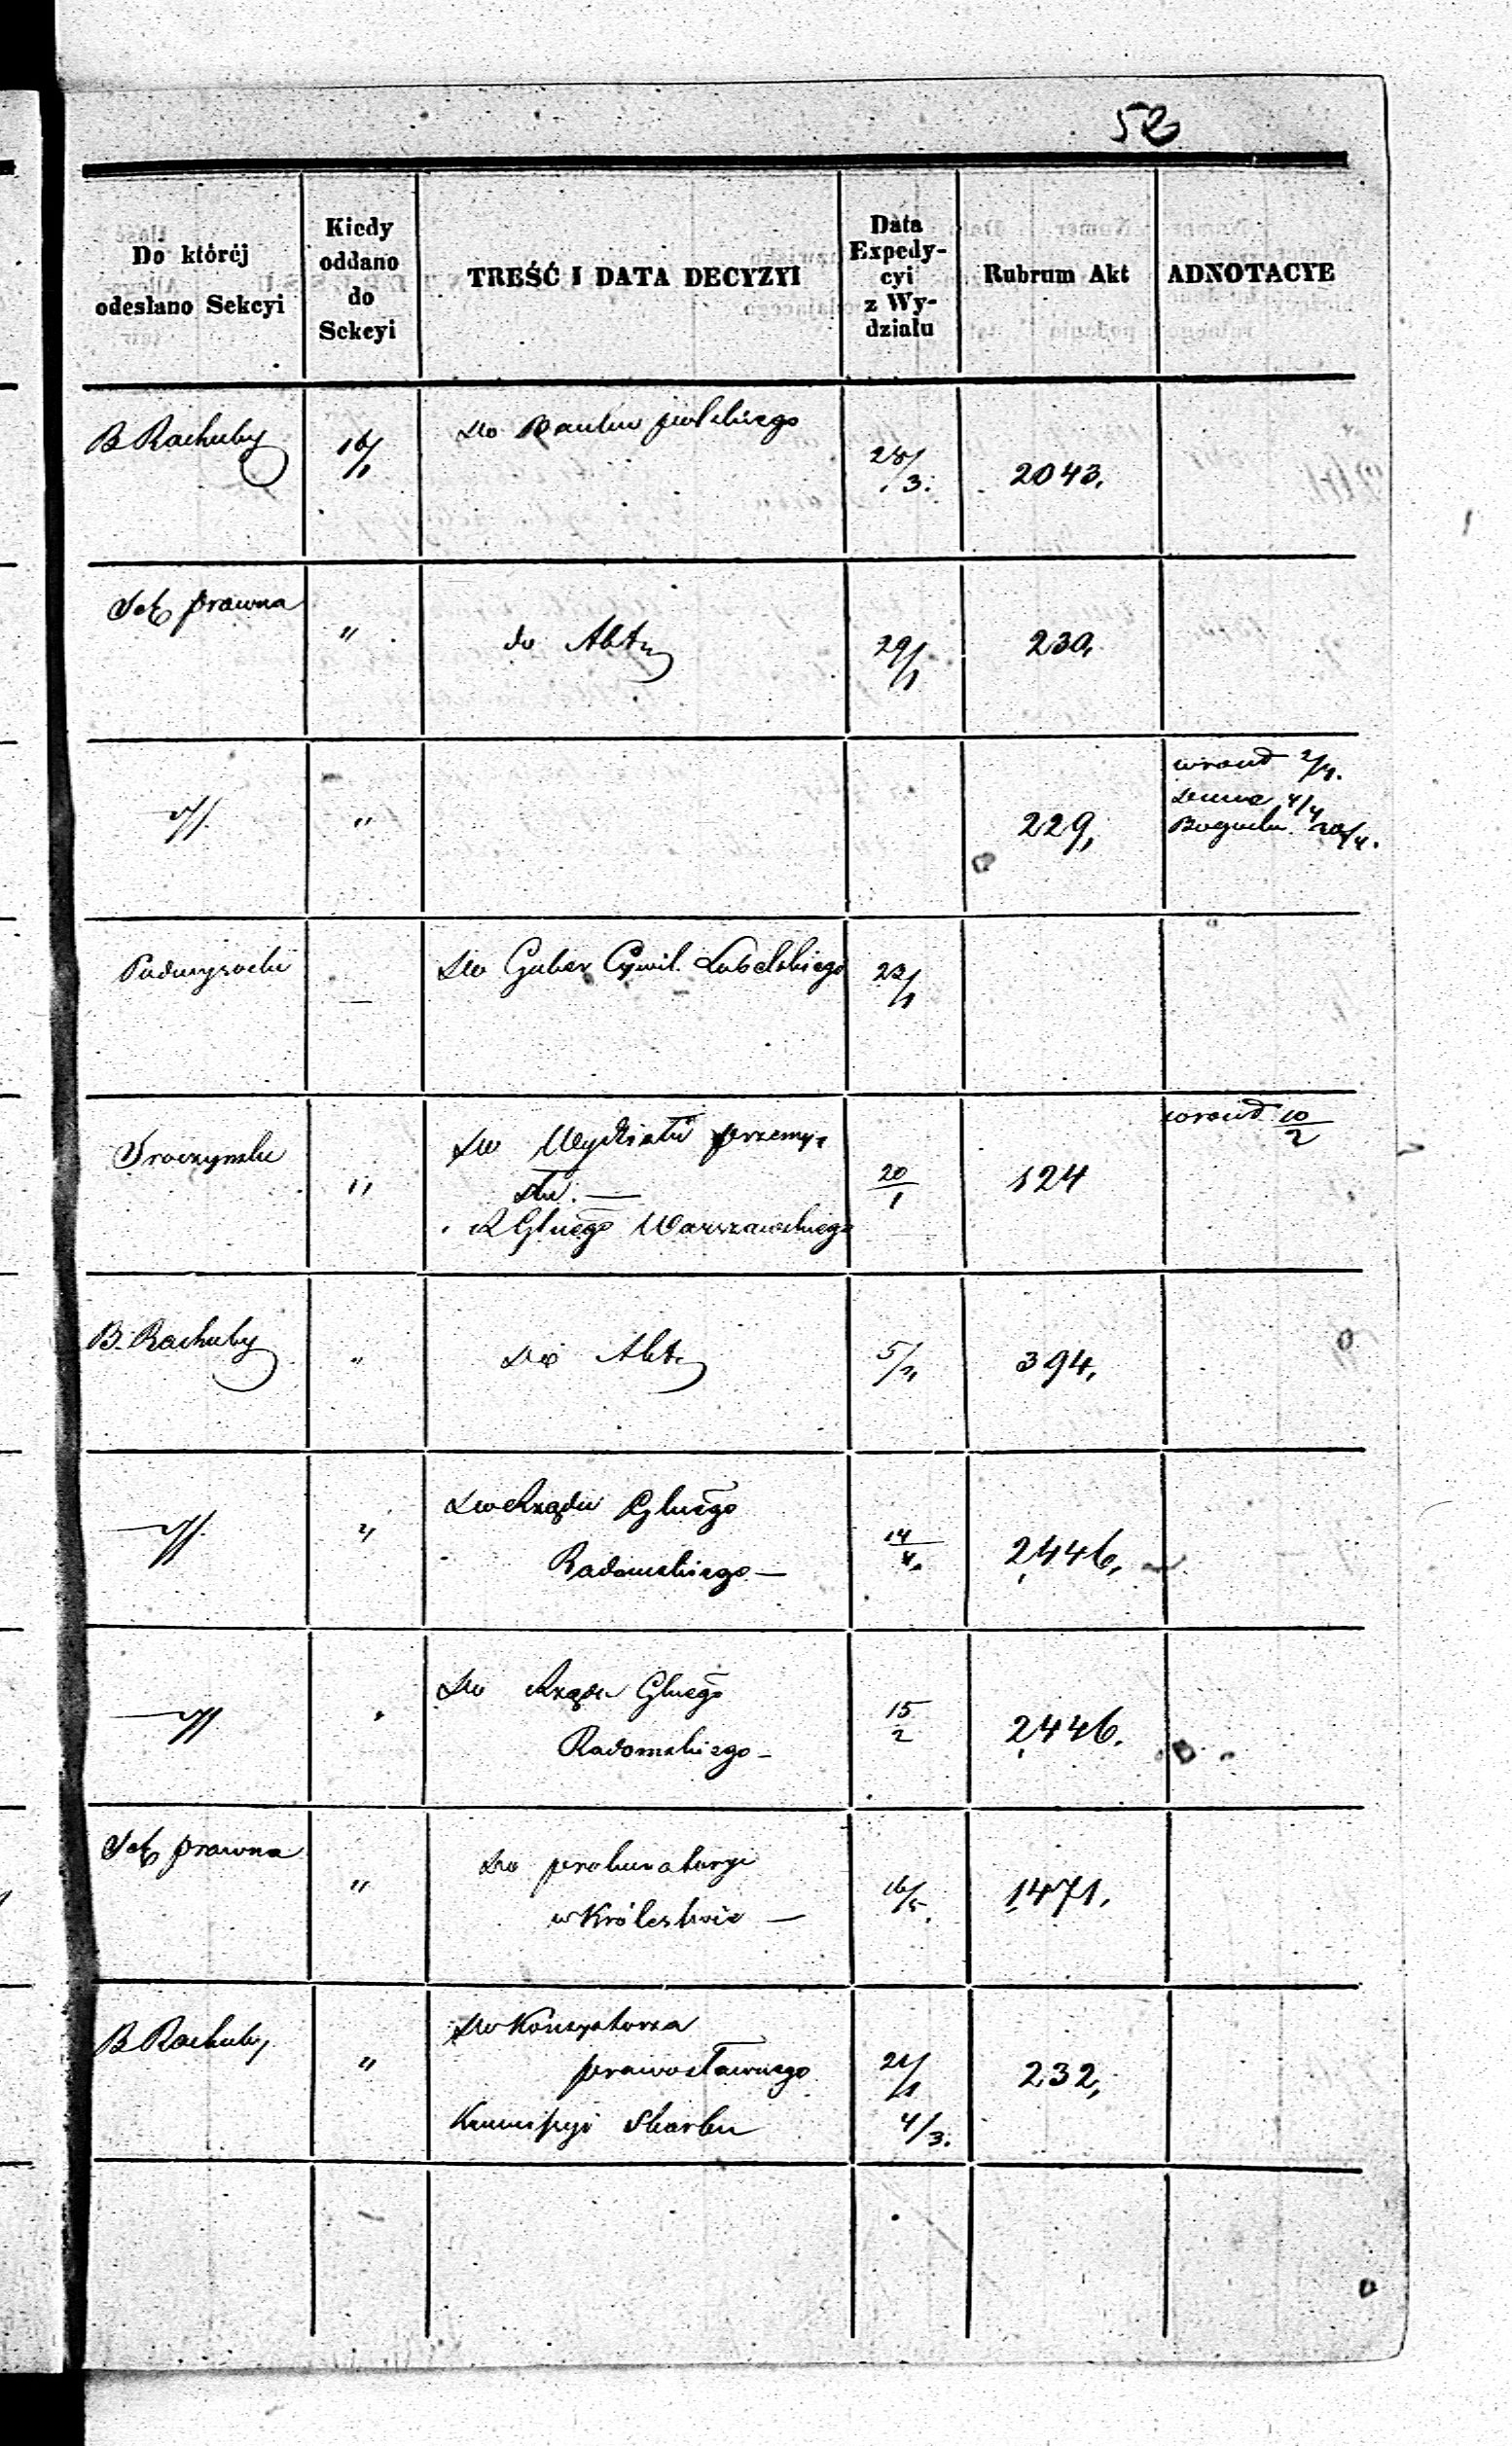 52
Do którėj
odesłano Sekcyi
Kiedy
oddano
do
Sekcyi
TREŚĆ I DATA DECYZYI
Data
Expedy-
cyi
z Wy-
działu
Rubrum Akt
ADNOTACYE
B Rachuby
16/1
Do Banku polskiego
28/3.
2043.
Sek prawna
"
do Akt
29/1
230,
"
229,
2/4.
4/4
20/4.
Do Guber Cywil. Lubelskiego
22/1
"
Do Wydziału przemy-
słu. —
R Glnego Warszawskiego
20/1
124
10/2
B. Rachuby
"
Do Akt
394,
"
Do Rządu Glnego
Radomskiego —
14/4.
2446.
Do Rządu Glnego
Radomskiego —
15/2
2446.
Sek prawna
"
Do prokuratoryi
w Królestwie —
16/5.
1471.
B Rachuby
"
Do Konsystorza
prawosławnego
232,
Kommissyi Skarbu
4/3.